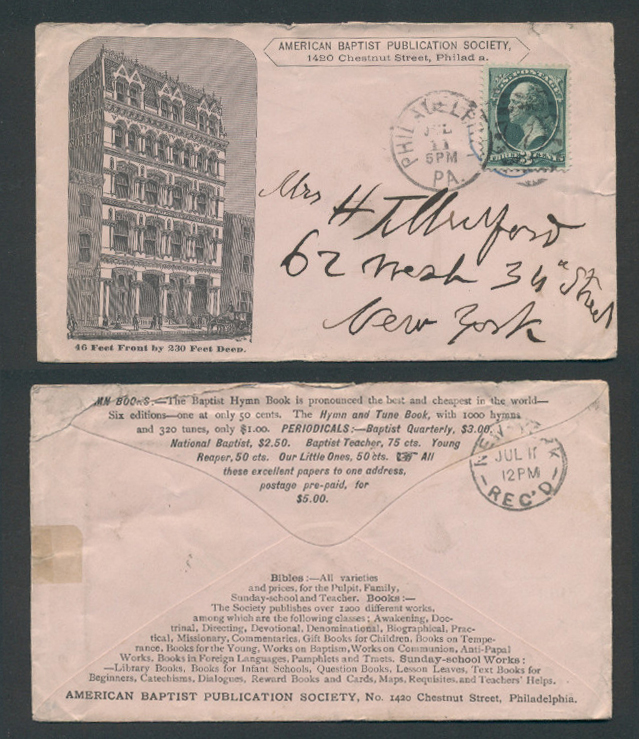 AMERICAN BAPTIST PUBLICATION SOCIETY,
1420 Chestnut Street, Philad a.
U.S. POSTAGE
THREE 3 CENTS
PHILADELPHIA
JUL
11
5PM
PA.
Mrs H T Mulford
62 West 34" Street
New York
46 Feet Front by 230 Feet Deep.
MN BOOKS:—The Baptist Hymn Book is pronounced the best and cheapest in the world—
Six editions—one at only 50 cents. The Hymn and Tune Book, with 1000 hymns
and 320 tunes, only $1.00. PERIODICALS:—Baptist Quarterly, $3.00.
National Baptist, $2.50. Baptist Teacher, 75 cts. Young
Reaper, 50 cts. Our Little Ones, 50 cts. ☞ All
these excellent papers to one address,
postage pre-paid, for
$5.00.
NEW YORK
JUL 11
12PM
REC'D
Bibles:—All varieties
and prices, for the Pulpit, Family,
Sunday-school and Teacher. Books:—
The Society publishes over 1200 different works,
among which are the following classes; Awakening, Doc-
trinal, Directing, Devotional, Denominational, Biographical, Prac-
tical, Missionary, Commentaries, Gift Books for Children, Books on Tempe-
rance, Books for the Young, Works on Baptism, Works on Communion, Anti-Papal
Works, Books in Foreign Languages, Pamphlets and Tracts. Sunday-school Works:
—Library Books, Books for Infant Schools, Question Books, Lesson Leaves, Text Books for
Beginners, Catechisms, Dialogues, Reward Books and Cards, Maps, Requisites, and Teachers' Helps.
AMERICAN BAPTIST PUBLICATION SOCIETY, No. 1420 Chestnut Street, Philadelphia.